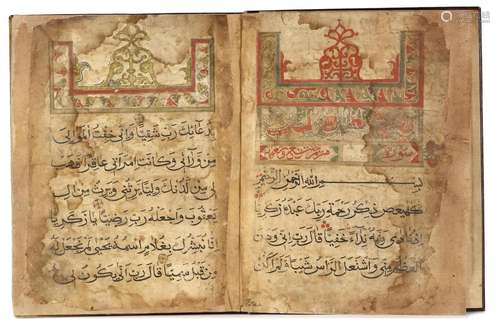 سورة
بسم الله الرحمن الرحيم
كهيعص ذكر رحمة ربك عبده زكريا
ربه نداء خفيا قال رب اني وهن
العظم مني واشتعل الراس شيبا ولم اكن
بدعائك رب شقيا واني خفت الموالي
من ورائي وكانت امراتي عاقرا فهب
لي من لدنك وليا يرثني ويرث من ال
يعقوب واجعله رب رضيا يا زكريا
انا نبشرك بغلام اسمه يحيى لم نجعل له
من قبل سميا قال رب اني يكون لي